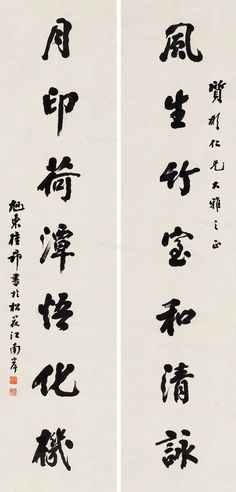 質彬仁兄大雅之正
風生竹室和清詠
月印荷潭悟化機
旭東 書於松花江南岸